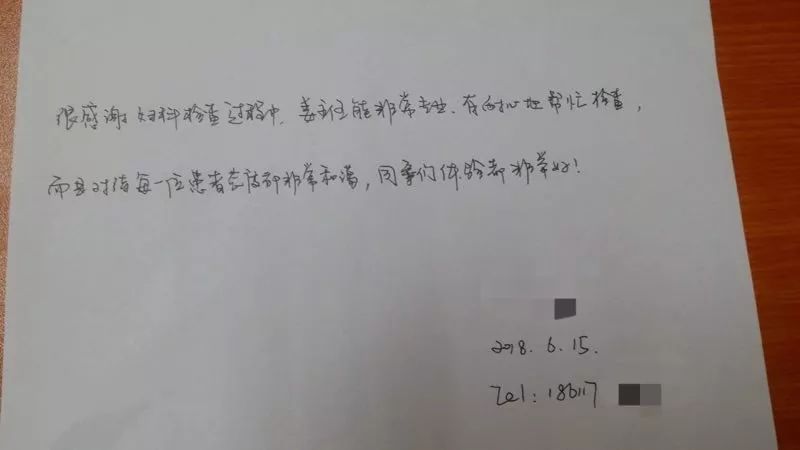 很感谢妇科检查过程中，姜主任能非常专业、有耐心地帮忙检查，
而且对待每一位患者态度都非常和蔼，同事们体验都非常好！
2018.6.15.
Tel：186117